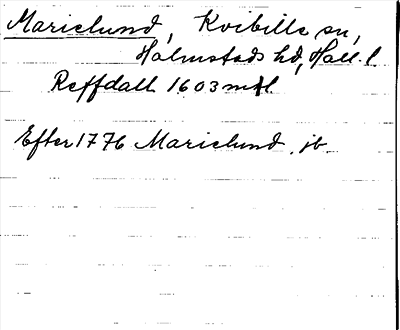 Marielund, Kvibille sn,
Halmstads hd, Hall. l.
Reffdall 1603 mtl
Efter 1776 Marielund, jb.